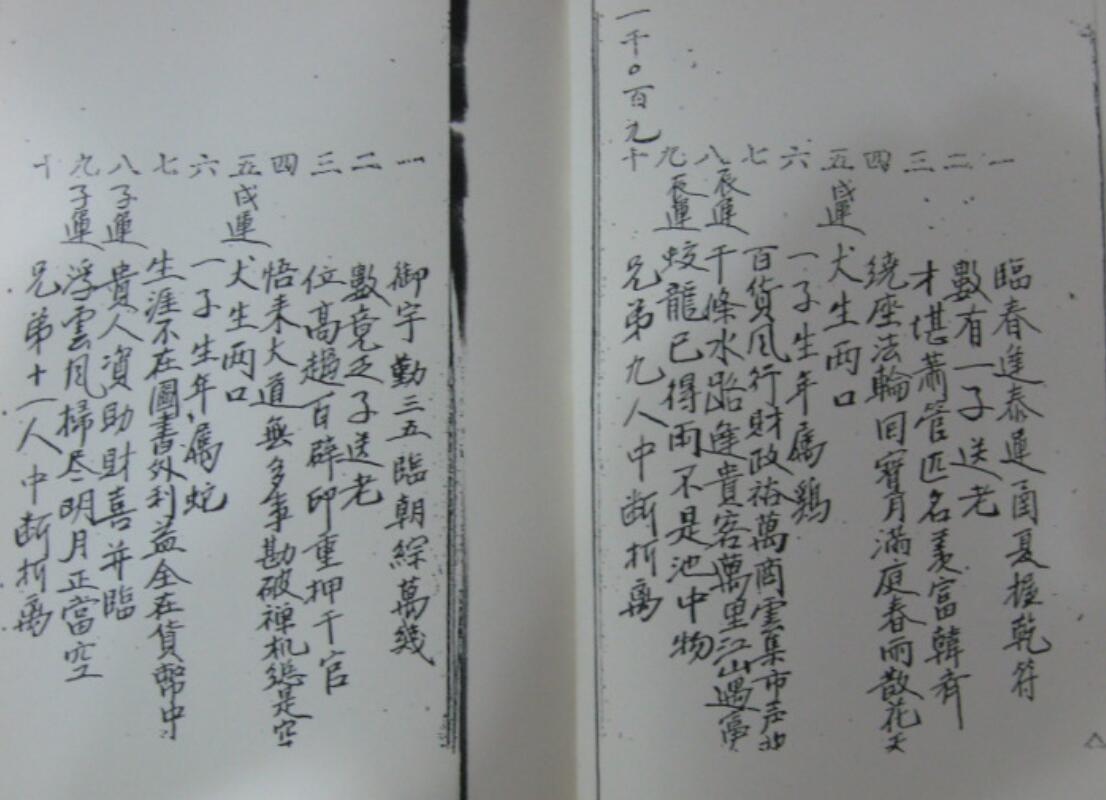 一千〇百九
一 臨春逢泰運 圉夏握乾符
二 數有一子送老
三 才堪蕭管匹 名義富韓齊
四 繞座法輪回寶月 滿庭春雨散花天
五 戌運 犬生兩口
六 一子生年屬鷄
七 百貨風行財政裕 萬商雲集市声
八 辰運 千條水路逢貴客 萬里江山遇
九 辰運 蛟龍已得雨 不是池中物
十 兄弟九人中断折离
一 御宇勤三五 臨朝綜萬幾
二 數竟乏子送老
三 位高趨百辟 印重押千官
四 悟来大道無多事 勘破禅机総是空
五 戌運 犬生兩口
六 一子生年屬蛇
七 生涯不在圖書外 利益全在貨幣中
八 子運 貴人資助 財喜并臨
九 子運 浮雲風掃尽 明月正當空
十 兄弟十一人中断折离